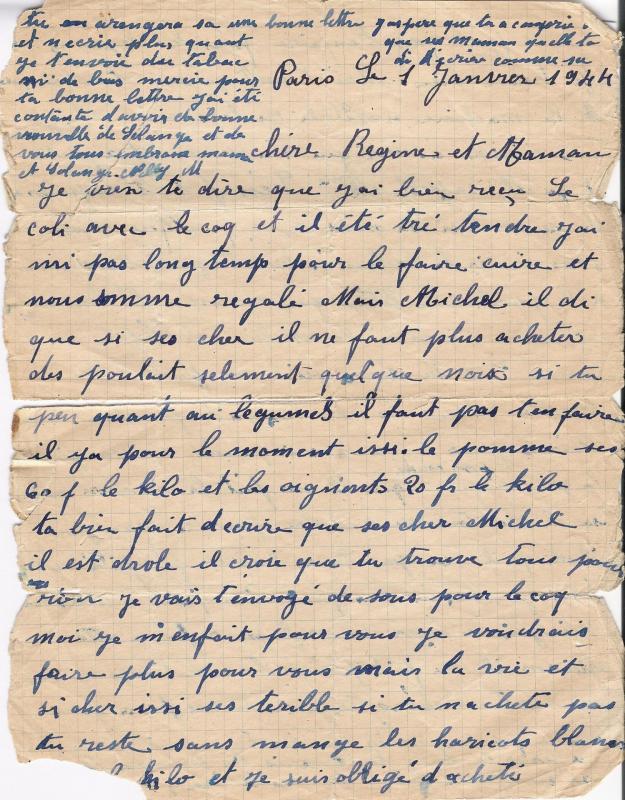 tu en arengera sa une bonne lettre
et n ecrie plus quant
je t'envoie du tabac
ni de bois mercie pour
ta bonne lettre j'ai été
contante d'avoir de bonne
nouvelle de Solange et de
vous tous embrasse mama
et Solange
j'aspere que tu a comprie
que ses maman quelle ta
di d'ecrire comme sa
Paris Le 1 Janvier 1944
chére Regine et Maman
Je vien te dire que j'ai bien reçu Le
coli avec le coq et il été tré tendre j'ai
mi pas long temp pour le faire cuire et
nous somme regalé Mais Michel il di
que si ses cher il ne faut plus acheter
des poulait selement quelque noix si tu
peu quant au légumes il faut pas t'en faire
il ya pour le moment issi le pomme ses
60 f le kilo et les oignonts 20 fr le kilo
ta bien fait decrire que ses cher Michel
il est drole il croie que tu trouve tous pour
rien je vais t'envoyé de sous pour le coq
moi je m'enfait pour vous je voudrais
faire plus pour vous mais la vie et
si cher issi ses terible si tu n achete pas
tu reste sans mange les haricots blancs
kilo et je suis obligé d acheté